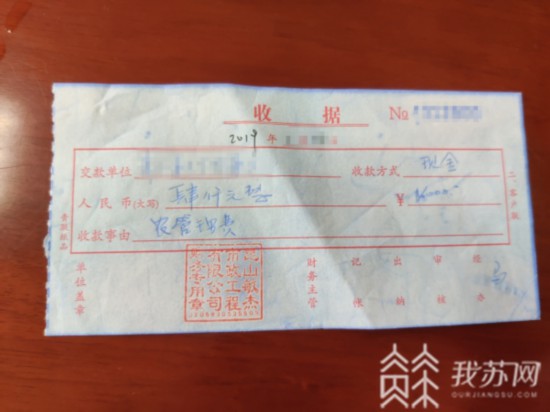 收 据 №
2019 年
交款单位 收款方式 现金
人民币(大写) 肆仟元整 ¥ 4000.00
收款事由 管理费
二、客户联
单位盖章 财务主管 记账 出纳 审核 经办
昆山敏杰
市装工程
有限公司
专用章
我苏网
OURJIANGSU.COM